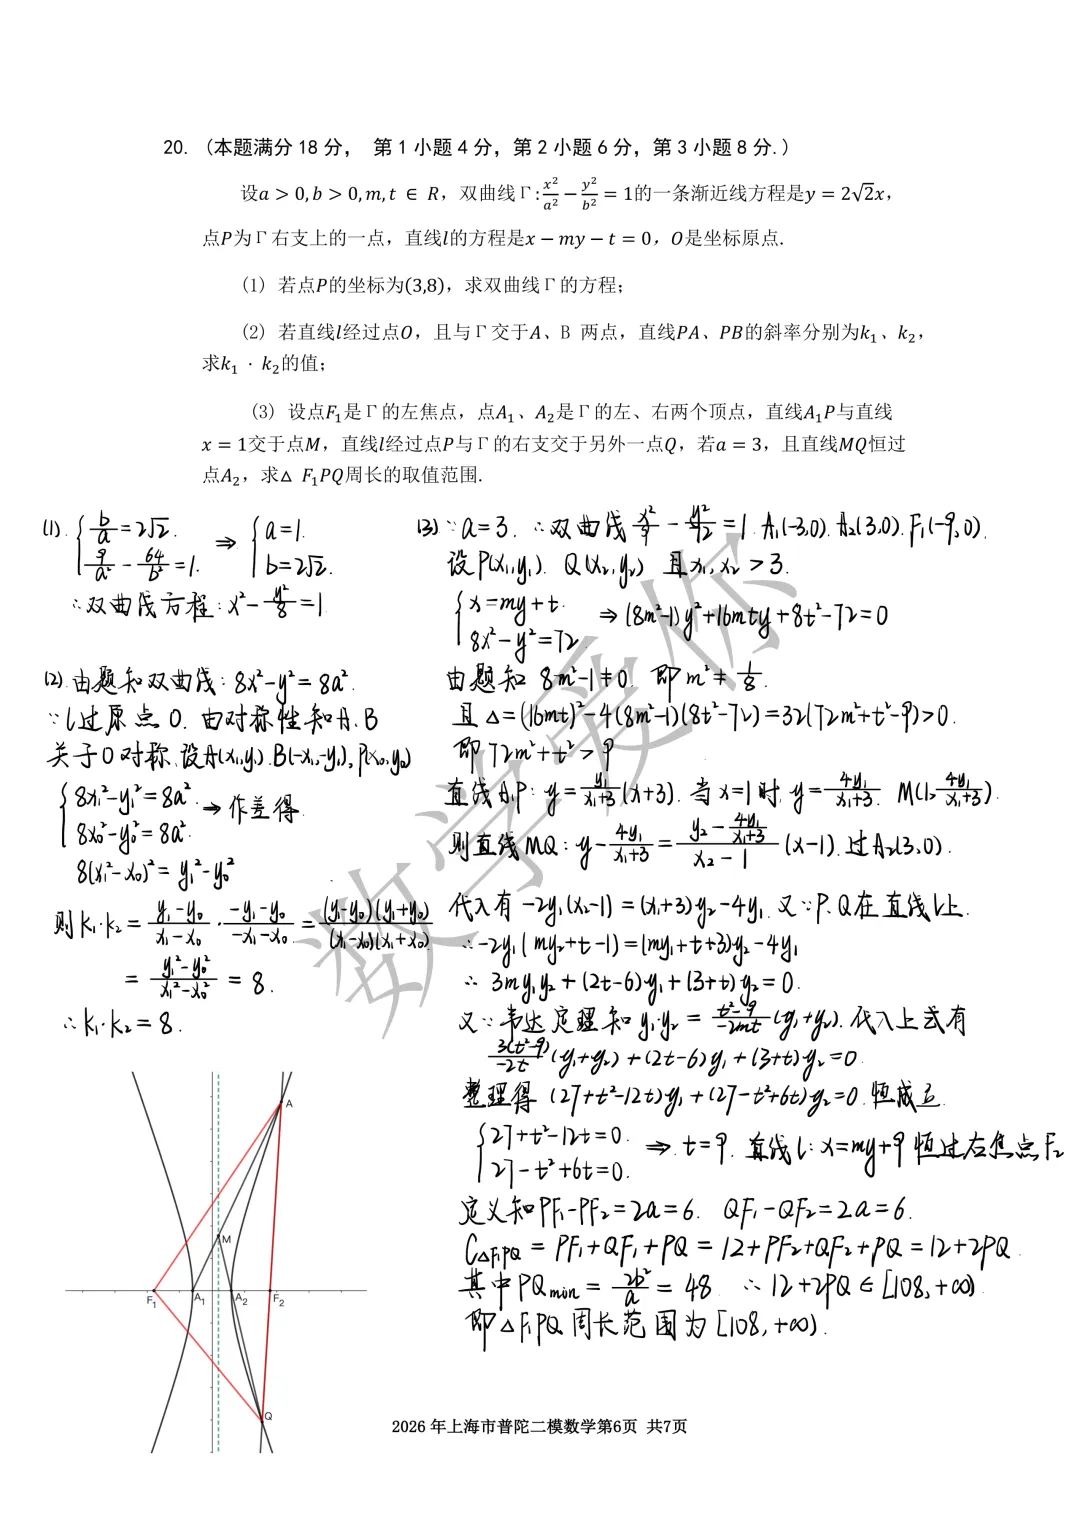 20. (本题满分 18 分， 第 1 小题 4 分，第 2 小题 6 分，第 3 小题 8 分.)
设a > 0, b > 0, m, t ∈ R，双曲线Γ: x²/a² − y²/b² = 1的一条渐近线方程是y = 2√2x，
点P为Γ右支上的一点，直线l的方程是x − my − t = 0，O是坐标原点.
(1) 若点P的坐标为(3,8)，求双曲线Γ的方程；
(2) 若直线l经过点O，且与Γ交于A、B 两点，直线PA、PB的斜率分别为k₁、k₂，
求k₁ · k₂的值；
(3) 设点F₁是Γ的左焦点，点A₁、A₂是Γ的左、右两个顶点，直线A₁P与直线
x = 1交于点M，直线l经过点P与Γ的右支交于另外一点Q，若a = 3，且直线MQ恒过
点A₂，求△ F₁PQ周长的取值范围.
(1). { b/a = 2√2. 9/a² − 64/b² = 1. ⇒ { a=1. b=2√2.
∴双曲线方程: x² − y²/8 = 1
(2).由题知双曲线: 8x²−y²=8a².
∵l过原点O. 由对称性知A.B
关于O对称,设A(x₁,y₁).B(−x₁,−y₁),P(x₀,y₀)
{ 8x₁²−y₁²=8a². 8x₀²−y₀²=8a². → 作差得
8(x₁²−x₀)²=y₁²−y₀²
则k₁·k₂ = (y₁−y₀)/(x₁−x₀) · (−y₁−y₀)/(−x₁−x₀) = (y₁−y₀)(y₁+y₀)/(x₁−x₀)(x₁+x₀)
= (y₁²−y₀²)/(x₁²−x₀²) = 8.
∴k₁·k₂=8.
(3)∵a=3. ∴双曲线 x²/9 − y²/72 = 1. A₁(−3,0). A₂(3,0). F₁(−9,0).
设P(x₁,y₁). Q(x₂,y₂) 且x₁,x₂>3.
{ x=my+t. 8x²−y²=72. ⇒ (8m²−1)y²+16mty+8t²−72=0
由题知 8m²−1≠0. 即m²≠1/8.
且△=(16mt)²−4(8m²−1)(8t²−72)=32(72m²+t²−9)>0.
即72m²+t²>9
直线A₁P: y=y₁/(x₁+3)(x+3). 当x=1时, y=4y₁/(x₁+3). M(1, 4y₁/(x₁+3)).
则直线MQ: y−4y₁/(x₁+3) = (y₂−4y₁/(x₁+3))/(x₂−1) (x−1).过A₂(3,0).
代入有 −2y₁(x₂−1)=(x₁+3)y₂−4y₁. 又∵P.Q在直线l上.
∴−2y₁(my₂+t−1)=(my₁+t+3)y₂−4y₁
∴ 3my₁y₂+(2t−6)y₁+(3+t)y₂=0.
又∵韦达定理知 y₁·y₂ = (t²−9)/(−2mt) (y₁+y₂). 代入上式有
3(t²−9)/(−2t) (y₁+y₂)+(2t−6)y₁+(3+t)y₂=0.
整理得 (27+t²−12t)y₁+(27−t²+6t)y₂=0.恒成立
{ 27+t²−12t=0. 27−t²+6t=0. ⇒ t=9. 直线l: x=my+9 恒过右焦点F₂
定义知PF₁−PF₂=2a=6. QF₁−QF₂=2a=6.
C△F₁PQ = PF₁+QF₁+PQ = 12+PF₂+QF₂+PQ = 12+2PQ.
其中PQmin = 2b²/a = 48. ∴12+2PQ∈[108,+∞)
即△F₁PQ周长范围为[108,+∞).
A
M
F₁ A₁ A₂ F₂
Q
数学爱你
2026 年上海市普陀二模数学第6页 共7页